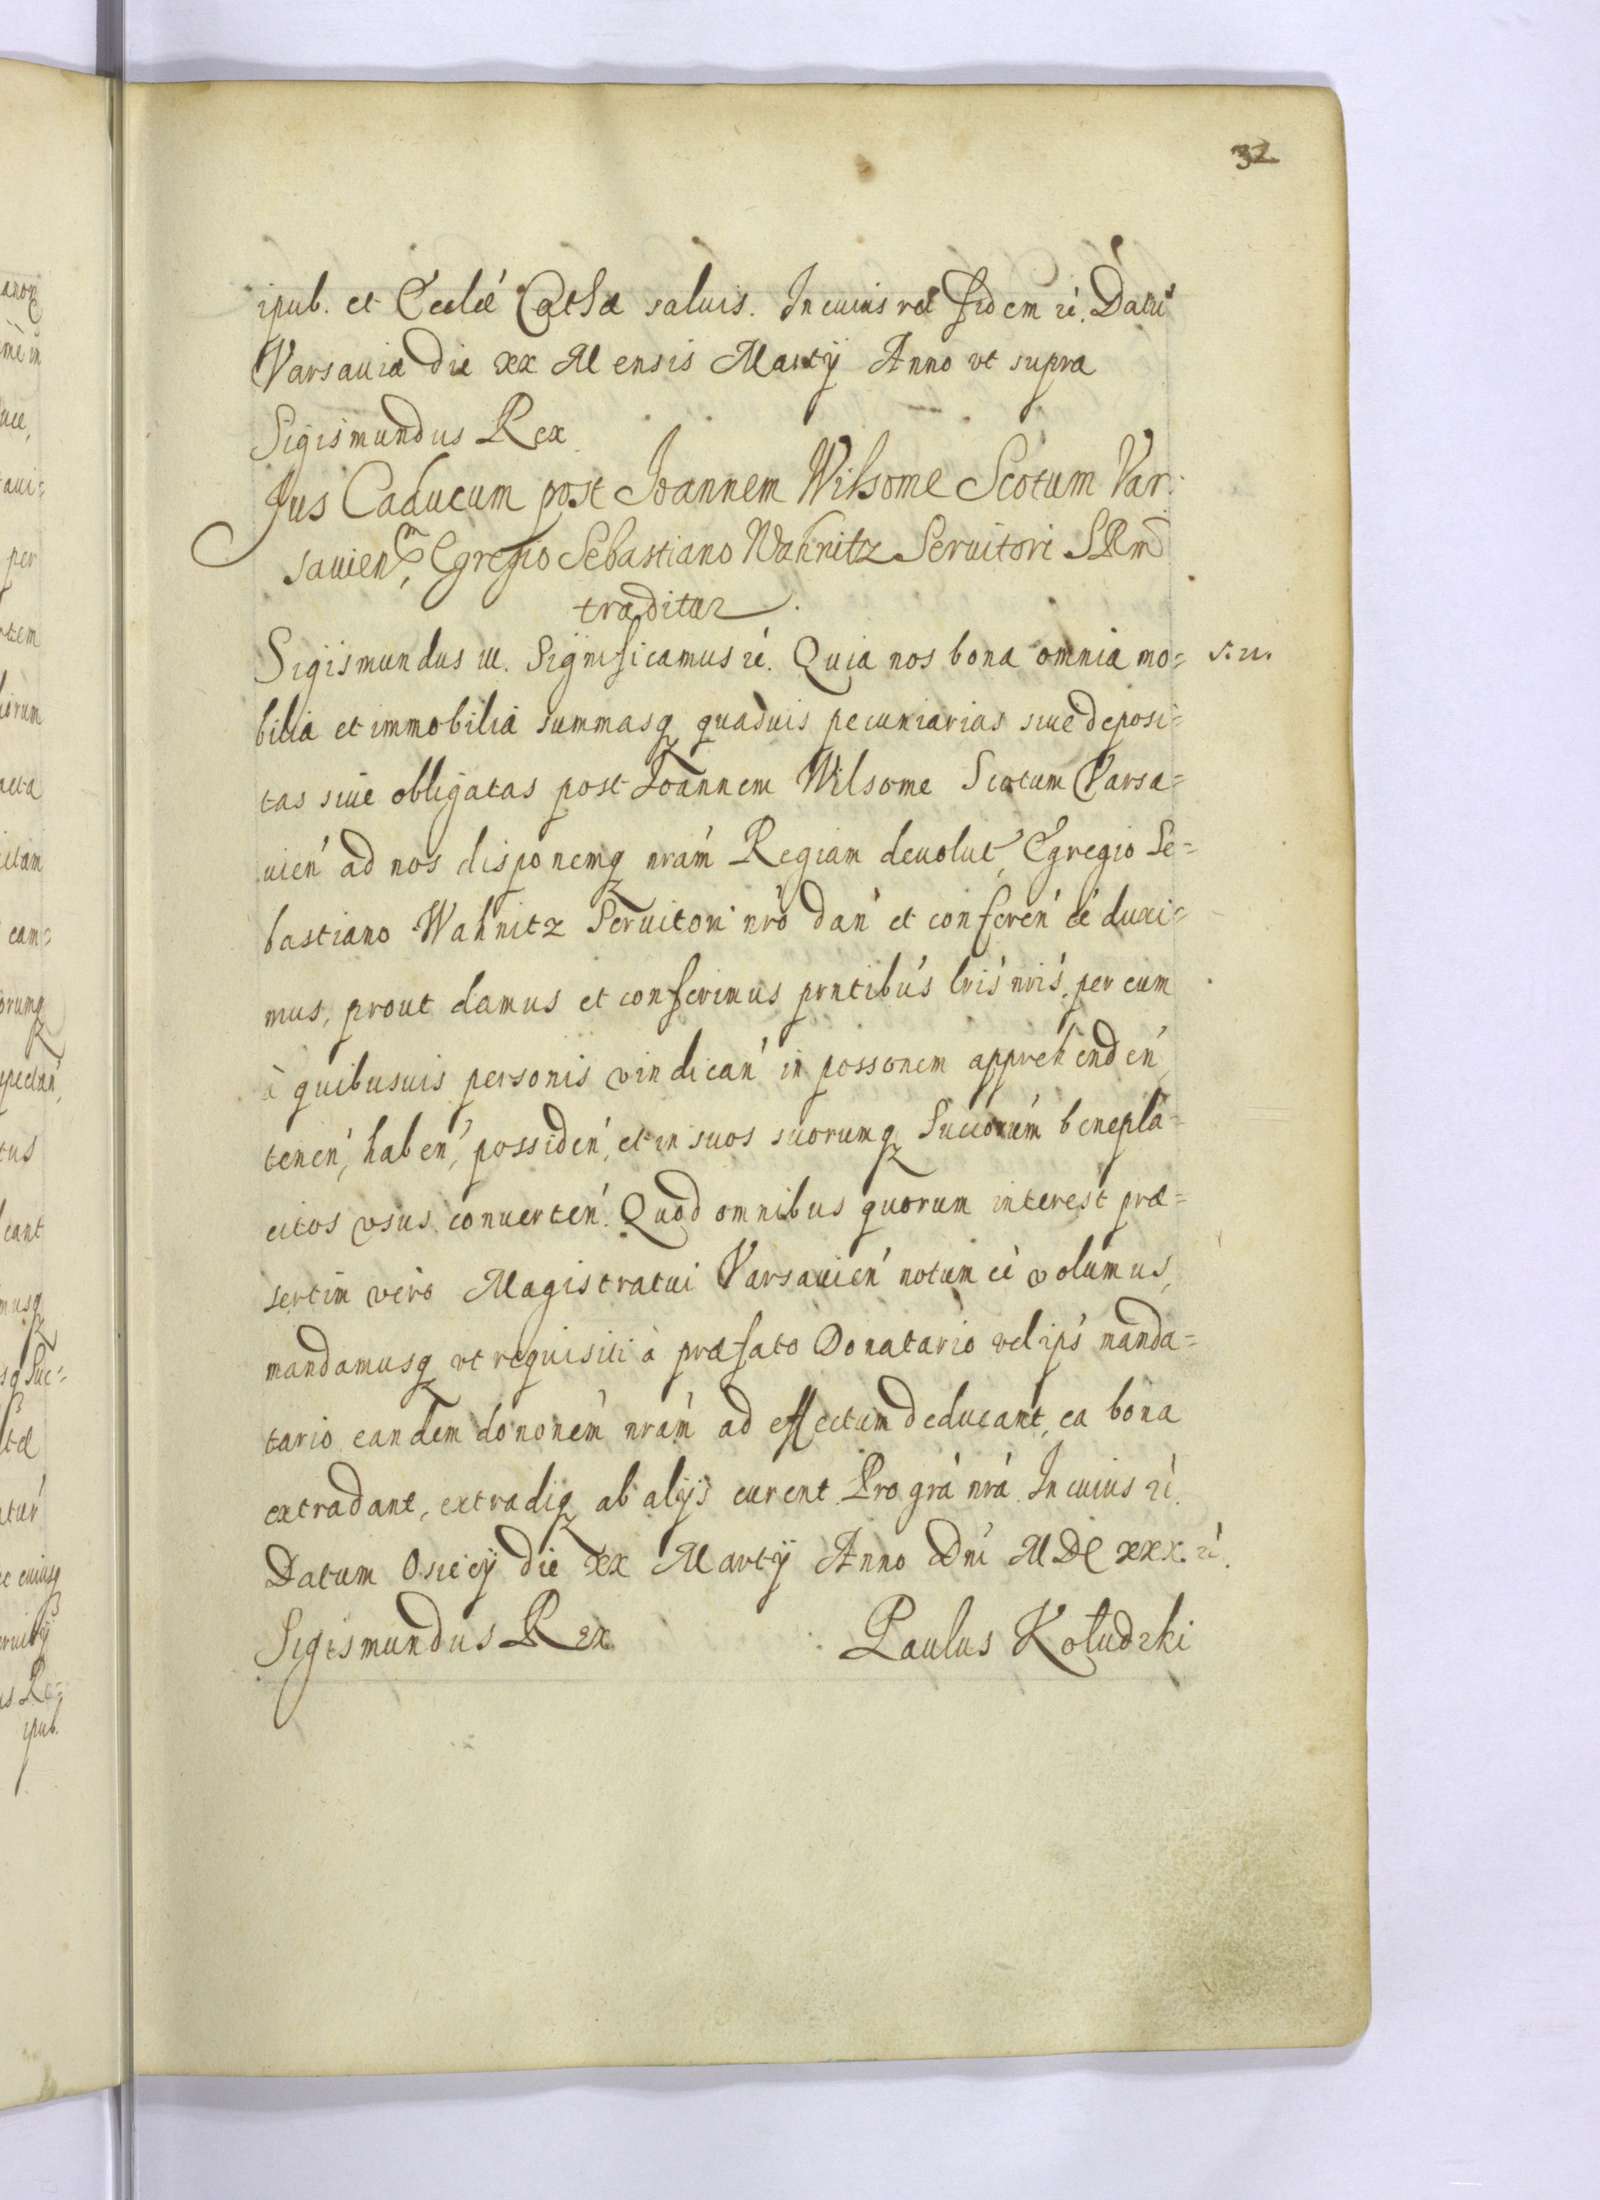 32
ipub. et Ecclæ Cathæ saluis. In cuius rei fidem ec. Datu
Varsauiæ die xx Mensis Martij Anno vt supra
Sigismundus Rex
Jus Caducum post Joannem Wilsome Scotum Var:
sauien, Egregio Sebastiano Wahnitz Seruitori SRM
traditur.
Sigismundus III. Significamus ec. Quia nos bona omnia mo=
bilia et immobilia summasq quasuis pecuniarias siue deposi=
tas siue obligatas post Joannem Wilsome Scotum Varsa=
uien ad nos disponemq nram Regiam deuolut, Egregio Se=
bastiano Wahnitz Seruitori nro dan et conferen ee duxi=
mus, prout damus et conferimus prntibus lris nris, per eum
à quibusuis personis vindican in possonem apprehenden,
tenen, haben, possiden, et in suos suorumq Succorum benepla=
citos vsus conuerten. Quod omnibus quorum interest præ=
sertim vero Magistratui Varsauien notum ee volumus,
mandamusq vt requisiti à præfato Donatario vel ips manda=
tario eandem dononem nram ad effectum deducant, ea bona
extradant, extradiq ab alijs curent. Pro gra nra. In cuius ec.
Datum Osiecij die xx Martij Anno Dni MDCXXX. ec.
Sigismundus Rex Paulus Kołudzki